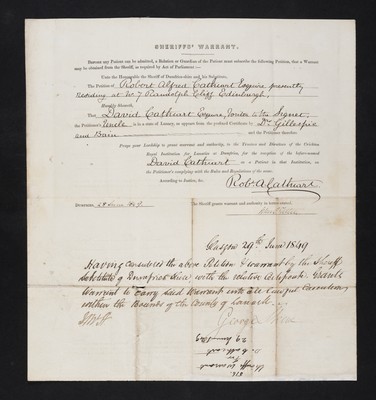 SHERIFFS' WARRANT.
Before any Patient can be admitted, a Relation or Guardian of the Patient must subscribe the following Petition, that a Warrant
may be obtained from the Sheriff, as required by Act of Parliament:—
Unto the Honourable the Sheriff of Dumfries-shire and his Substitutes,
The Petition of Robert Alfred Cathcart Esquire presently
Residing at No. 7 Randolph Cliff Edinburgh.
Humbly Sheweth,
That David Cathcart Esquire, Writer to the Signet,
the Petitioner's Uncle is in a state of Lunacy, as appears from the prefixed Certificate by Drs Gillespie
and Bain and the Petitioner therefore
Prays your Lordship to grant warrant and authority to the Trustees and Directors of the Crichton
Royal Institution for Lunatics at Dumfries, for the reception of the before-named
David Cathcart as a Patient in that Institution, on
the Petitioner's complying with the Rules and Regulations of the same.
According to Justice, &c.
Robt. A. Cathcart
Dumfries, June 1849 The Sheriff grants warrant and authority as above craved.
Glasgow 29th June 1849
Having considered the above Petition & warrant by the Sheriff
Substitute of Dumfries Shire with the relative Reports Grants
Warrant to carry said Warrant into Execution
within the Bounds of the County of Lanark.
George
Sheriffs Warrant
for
D. Cathcart
29 June 1849